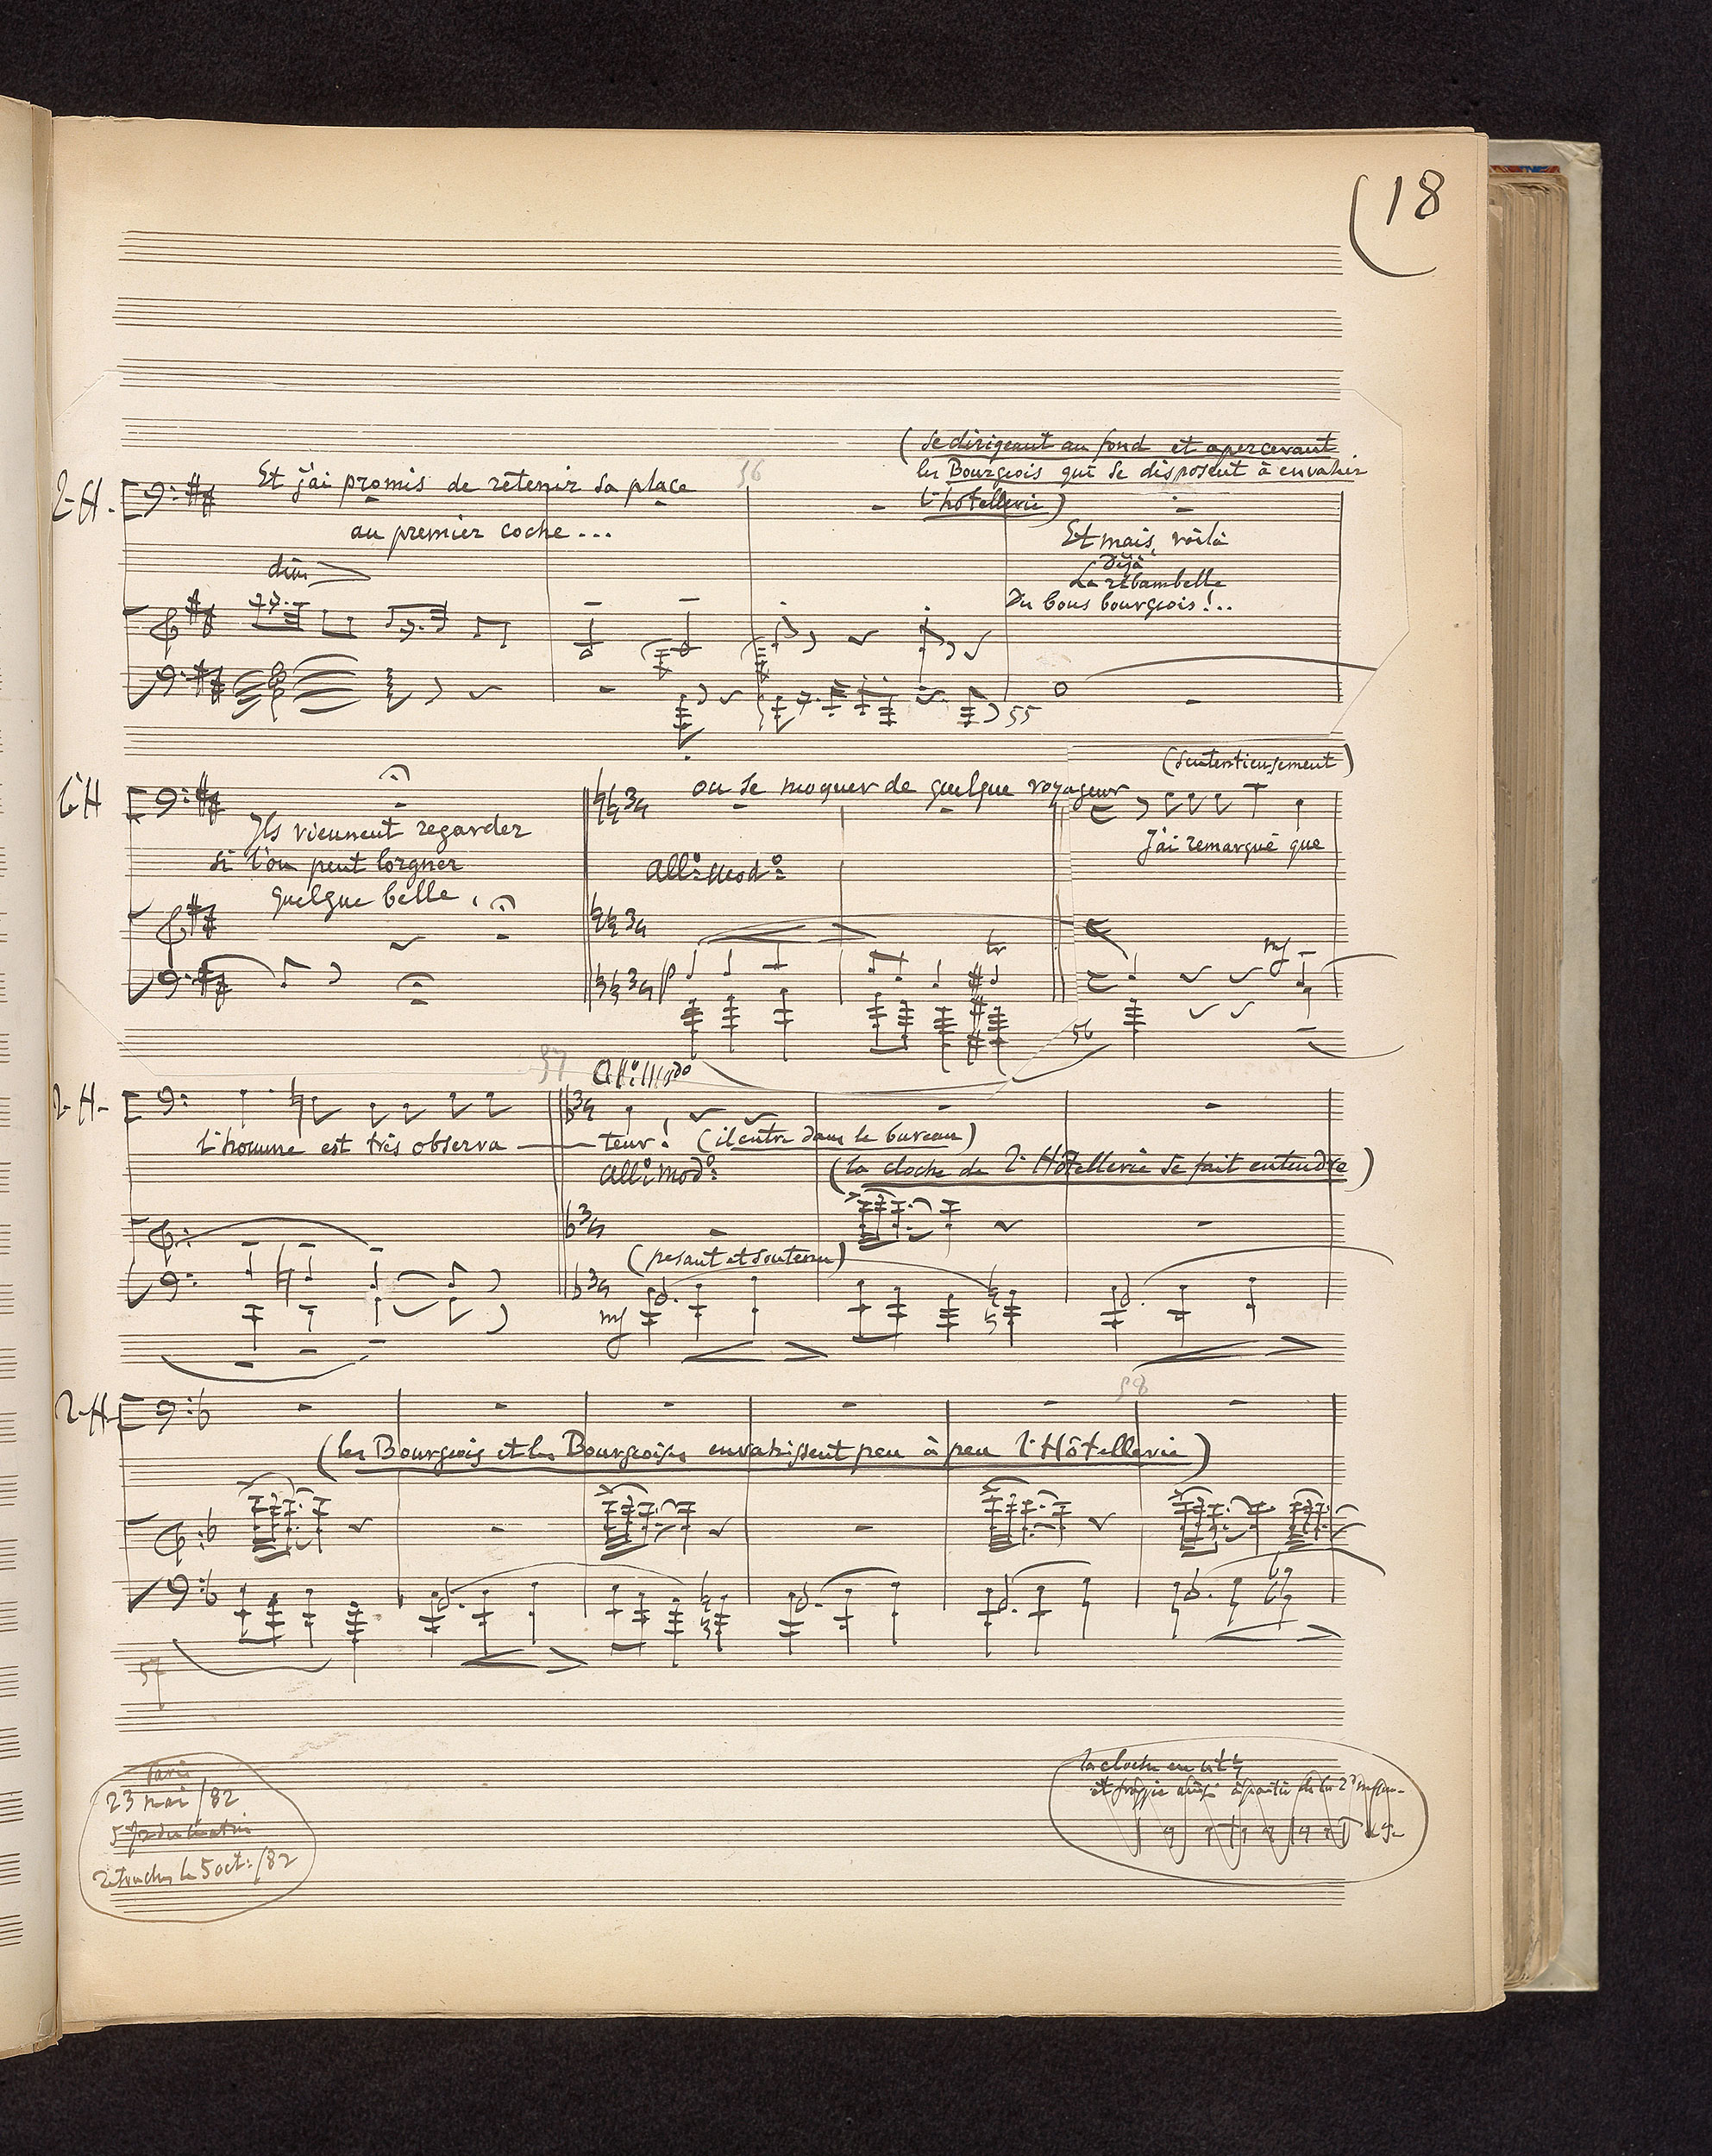 18
(Se dirigeant au fond et apercevant
les Bourgeois qui se disposent à envahir
l'hôtellerie)
36
L'H.
Et j'ai promis de retenir sa place
au premier coche...
Et mais, voilà
Déjà
La ribambelle
Du bons bourgeois!..
dim
55
(Sentencieusement)
L'H
ou se moquer de quelque voyageur
Ils viennent regarder
si l'on peut lorgner
quelque belle,
J'ai remarqué que
All:o Mod:o
p
tr
mf
56
37
All:o Modo
L'H.
l'homme est très observa — teur! (il entre dans le bureau)
All:o Mod:o
(la cloche de l'Hôtellerie se fait entendre)
(pesant et soutenu)
mf
58
L'H
(les Bourgeois et les Bourgeoises envahissent peu à peu l'Hôtellerie)
57
Paris
23 mai /82
5 du matin
retouches le 5 oct: /82
la cloche en ut
et frappe ainsi à partir de la 2e